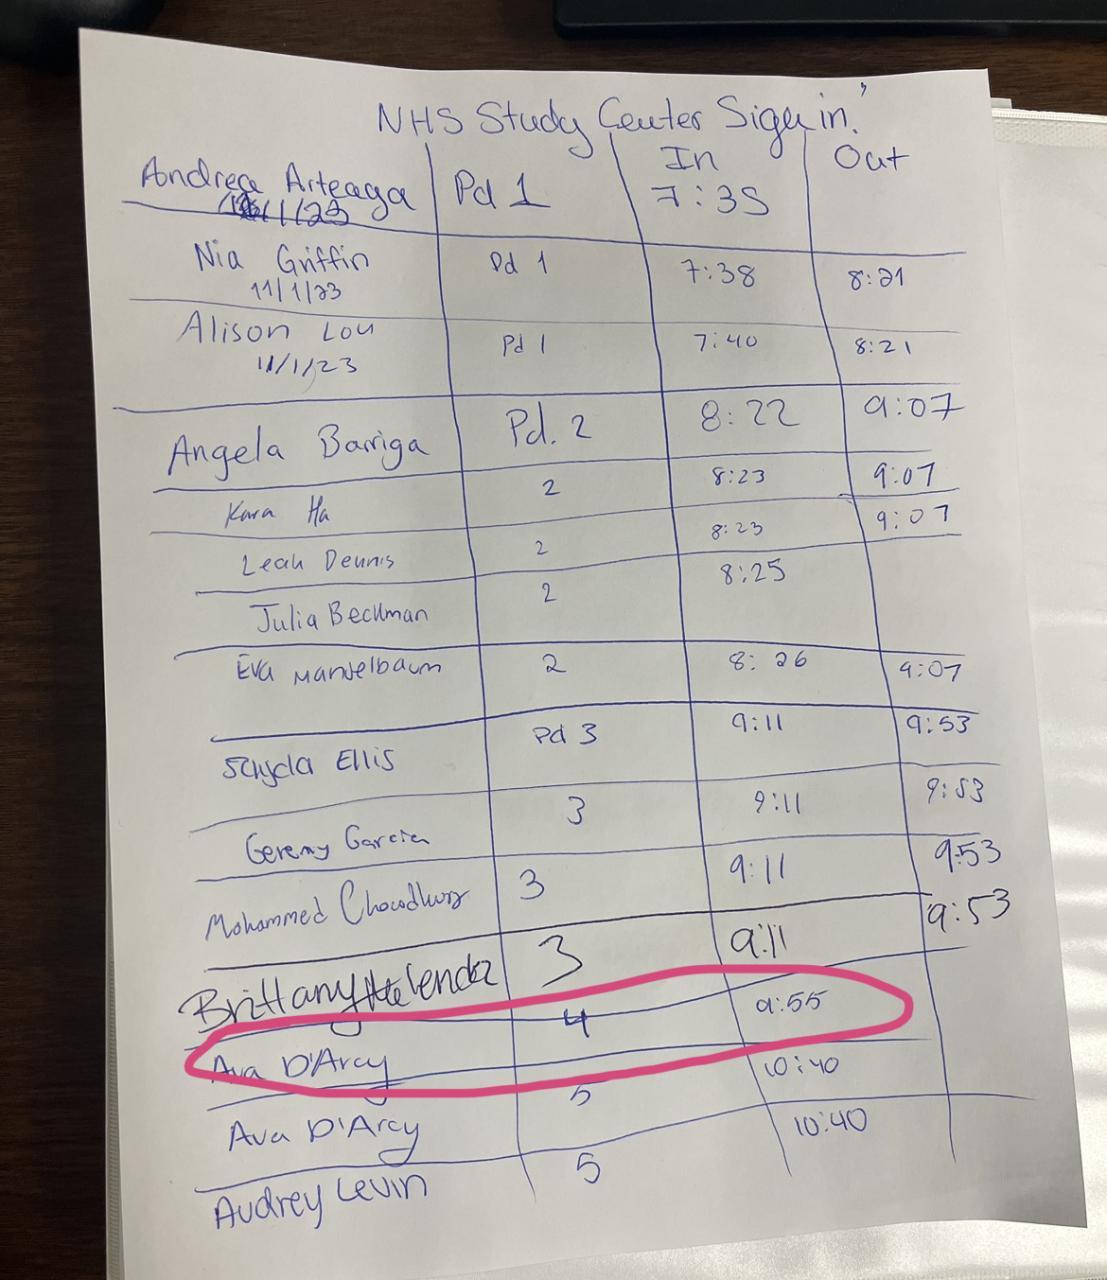 NHS Study Center Sign in.
In Out
Andrea Arteaga Pd 1 7:35
11/1/23
Nia Griffin Pd 1 7:38 8:21
11/1/23
Alison Lou Pd 1 7:40 8:21
11/1/23
Angela Barriga Pd. 2 8:22 9:07
Kara Ha 2 8:23 9:07
Leah Dennis 2 8:23 9:07
Julia Beckman 2 8:25
Eva Mandelbaum 2 8:26 9:07
Ellis Pd 3 9:11 9:53
Geremy Garcia 3 9:11 9:53
Mohammed Chowdhury 3 9:11 9:53
Brittany Melendez 3 9:11 9:53
Ava D'Arcy 4 9:55
Ava D'Arcy 5 10:40
Audrey Levin 5 10:40